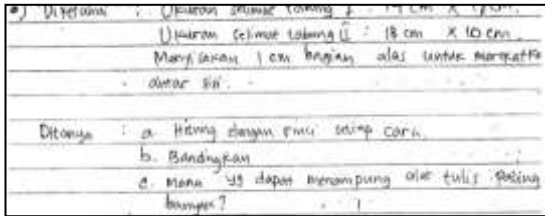 •) Diketahui : Ukuran selimut tabung I : 19 cm X
Ukuran selimut tabung II : 18 cm X 10 cm.
Menyisakan 1 cm bagian alas untuk
antar sisi.
Ditanya : a. Hitung dengan rinci setiap cara.
b. Bandingkan
c. Mana yg dapat menampung alat tulis paling
banyak?